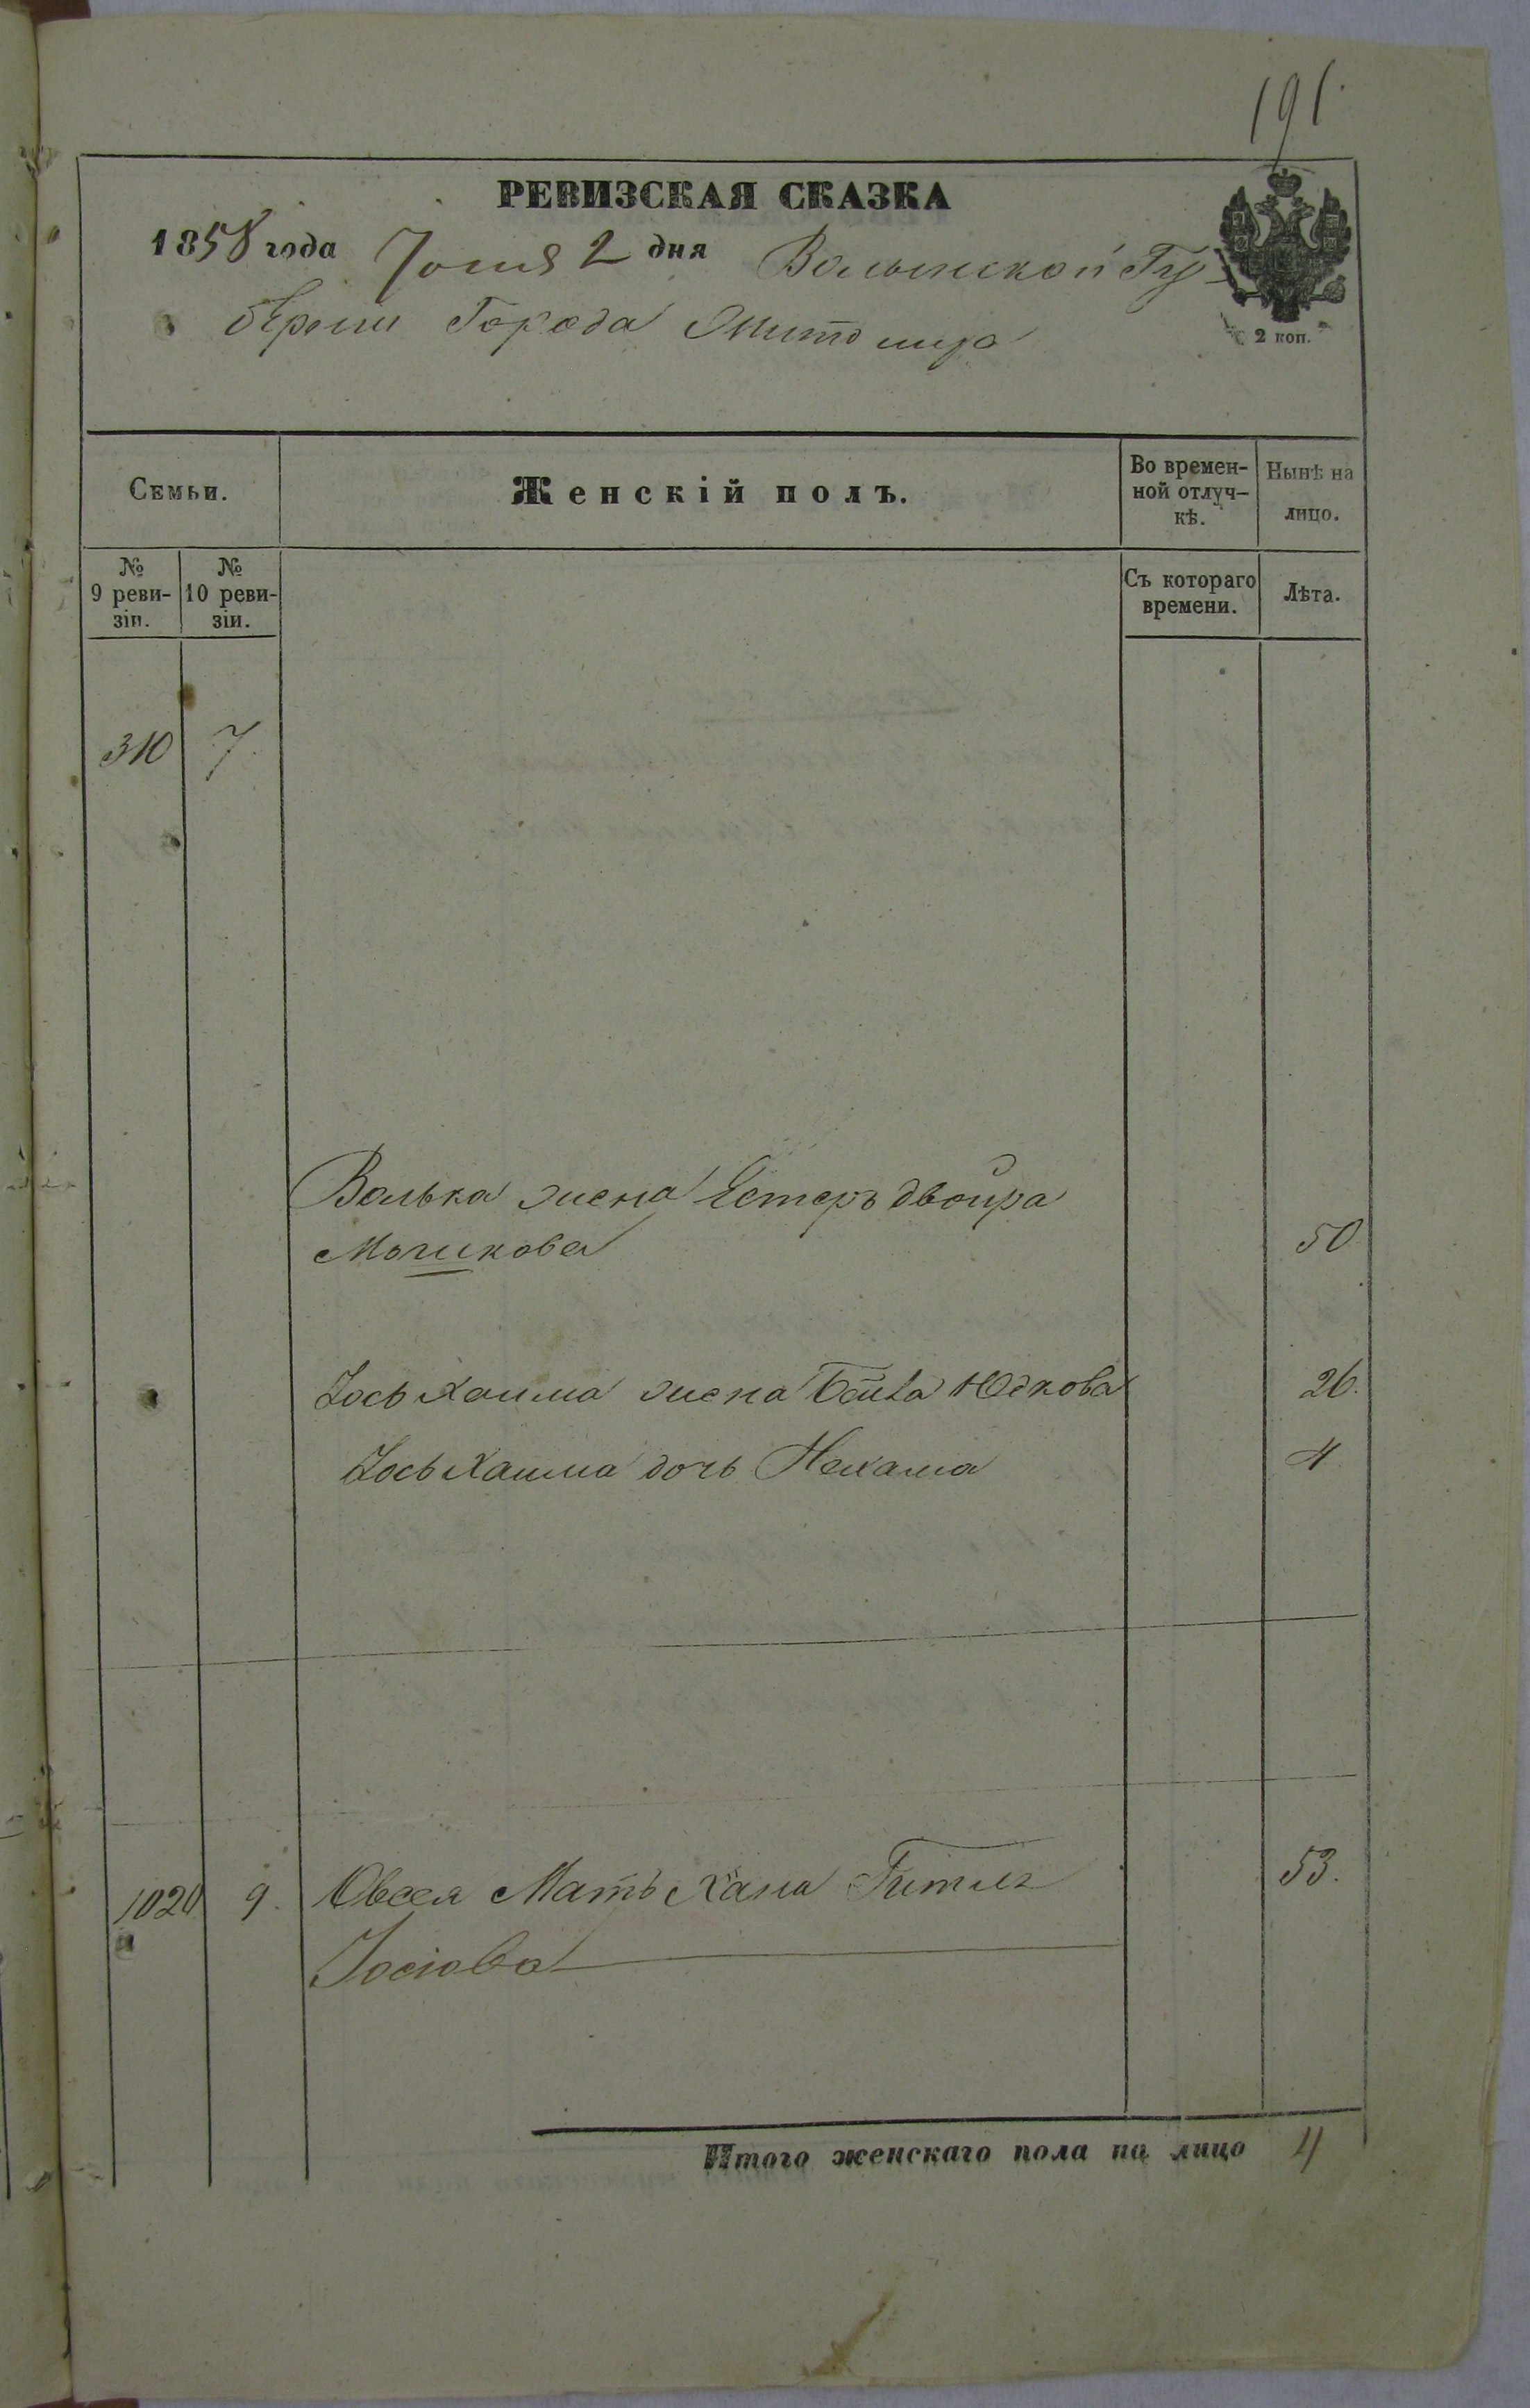 191.
РЕВИЗСКАЯ СКАЗКА
1858 года Іюня 2 дня Волынской Гу-
берніи Города Житомира
2 коп.
Семьи.
Женскій полъ.
Во времен-
ной отлуч-
кѣ.
Нынѣ на
лицо.
№
9 реви-
зіи.
№
10 реви-
зіи.
Съ котораго
времени.
Лѣта.
310 7.
Волька жена Естеръ Двойра
Мошкова 50.
Іось Хаима жена Бейла Юскова 26.
Іось Хаима дочь Нехама 4
1020 9. Овсея Мать Хана Гитля 53.
Іосіова
Итого женскаго пола на лицо 4